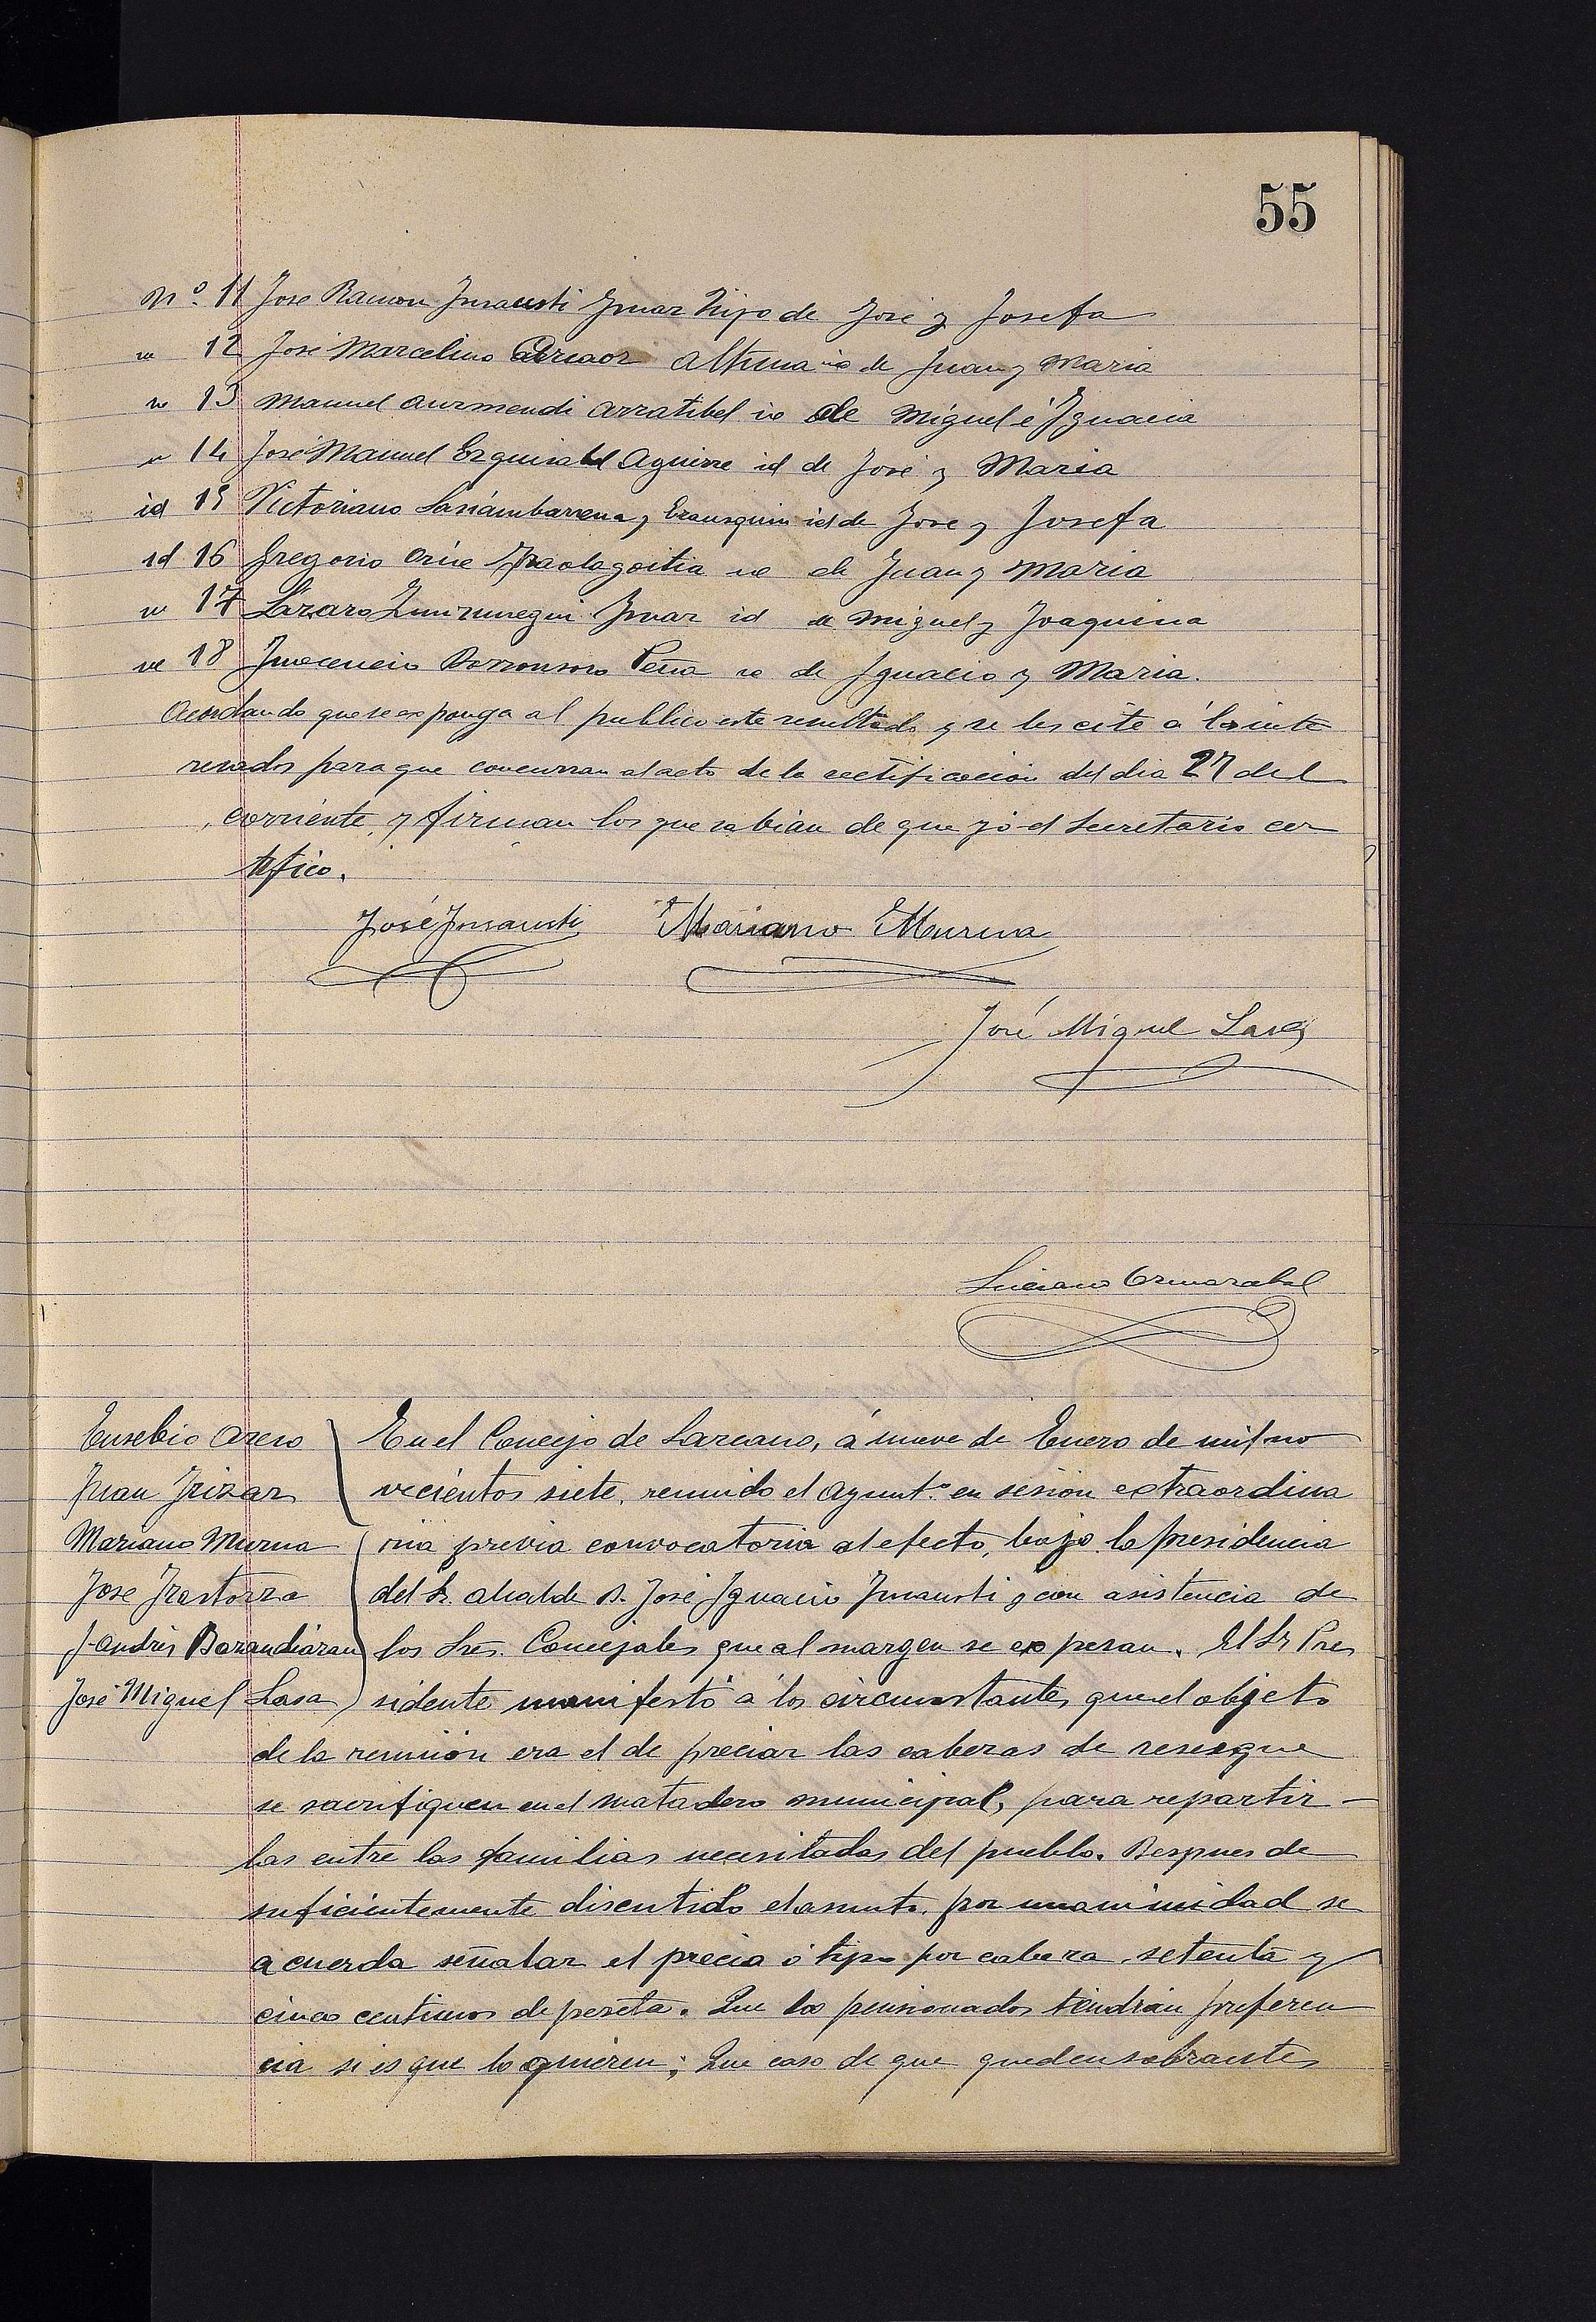 55
Nº. 11 Jose Ramon Insausti Ymaz hijo de José y Josefa
id 12 José Marcelino Altuna id de Juan y Maria
id 13 Manuel Aurmendi Arratibel id de Miguel é Ygnacia
id 14 José Manuel Ezquiabel Aguirre id de José y Maria
id 15 Victoriano Lasámbarrena y Erausquin id de Jose y Josefa
id 16 Gregorio Olagoitia id de Juan y Maria
id 17 Lázaro Zunzunegui Ymaz id de Miguel y Joaquina
id 18 Ynocencio Borronsoro Peña id de Ygnacio y Maria.
Acordando que se exponga al publico este resultado y se les cite á los inte
resados para que concurran al acto de la rectificación del dia 27 del
corriente, y firman los que sabian de que yo el Secretario cer
tifico.
José Insausti Mariano Murua
José Miguel Lasa
Luciano Ormazabal
Eusebio Otero
Juan Irizar
Mariano Murua
Jose Irastorza
J. Andrés Barandiáran
José Miguel Lasa
En el Concejo de Lazcano, á nueve de Enero de mil no
vecientos siete, reunido el Ayuntº. en sesión extraordina
ria previa convocatoria al efecto, bajo la presidencia
del Sr. Alcalde D. José Ygnacio Insausti y con asistencia de
los Sres. Concejales que al margen se expresan. El Sr Pre
sidente manifestó á los circunstantes que el objeto
de la reunión era el de preciar las cabezas de reses que
se sacrifiquen en el matadero municipal, para repartir-
las entre las familias necesitadas del pueblo. Despues de
suficientemente discutido el asunto, por unanimidad se
acuerda señalar el precio ó tipo por cabeza, setenta y
cinco centimos de peseta. Que los pensionados tendrán preferen
cia si es que lo quieren; Que caso de que queden sobrantes